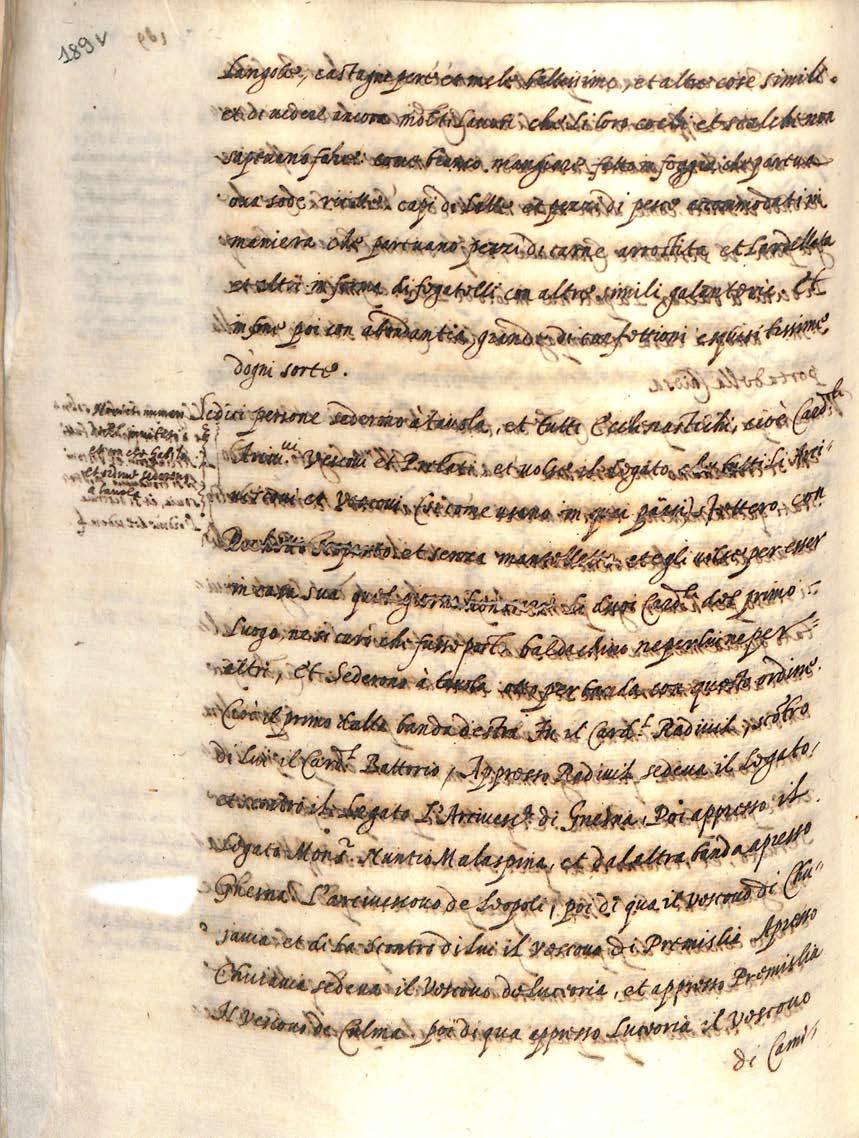 189v
Langole, castagne pere et mele bellissime, et altre cose simili.
et di uedere ancora molti lauori, che li loro cochi et scalchi non
sapeuano fare: come bianco mangiare fatto in foggia che pareua
oua sode, ricotte, capi di latte et pezzi di pesce accommodati in
maniera che pareuano pezzi di carne arrostita et lardellata
et altri in forma di fegatelli con altre simili galanterie. Et
in fine poi con abondantia grande di confettioni esquisitissime
d'ogni sorte.
Sedici persone sederno à tauola, et tutti Ecclesiastichi, cioè Card.li
Arciu.ui Vescoui et Prelati, et uolse il Legato che tutti li Arci-
uescoui et Vescoui (sicome usano in quei paesi) stettero con
Rochetto scoperto et senza mantelletta et egli uolse per esser
in casa sua quel giorno li duoi Card.li del primo
luogo, ne si curò che fusse posto baldachino ne per lui ne per
altri, et sederono à tauola otto per banda con questo ordine.
Cioè il primo dalla banda destra fu il Card.l Radiuil, scontro
di lui il Card.l Battorio, Appresso Radiuil sedeua il Legato,
et scontro il Legato L'Arciuesc.o di Gnesna, Poi appresso il
Legato Mons.r Nuntio Malaspina, et dal altra banda apresso
Ghesna L'arciuescouo de Leopoli, poi di qua il vescouo di Chu-
iauia et di la scontro di lui il vescouo di Premislia Apresso
Chuiauia sedeua il Vescouo de Luceoria, et appresso Premislia
Il vescouo de Culma. poi di qua appresso Luceoria il vescouo
di Cami-